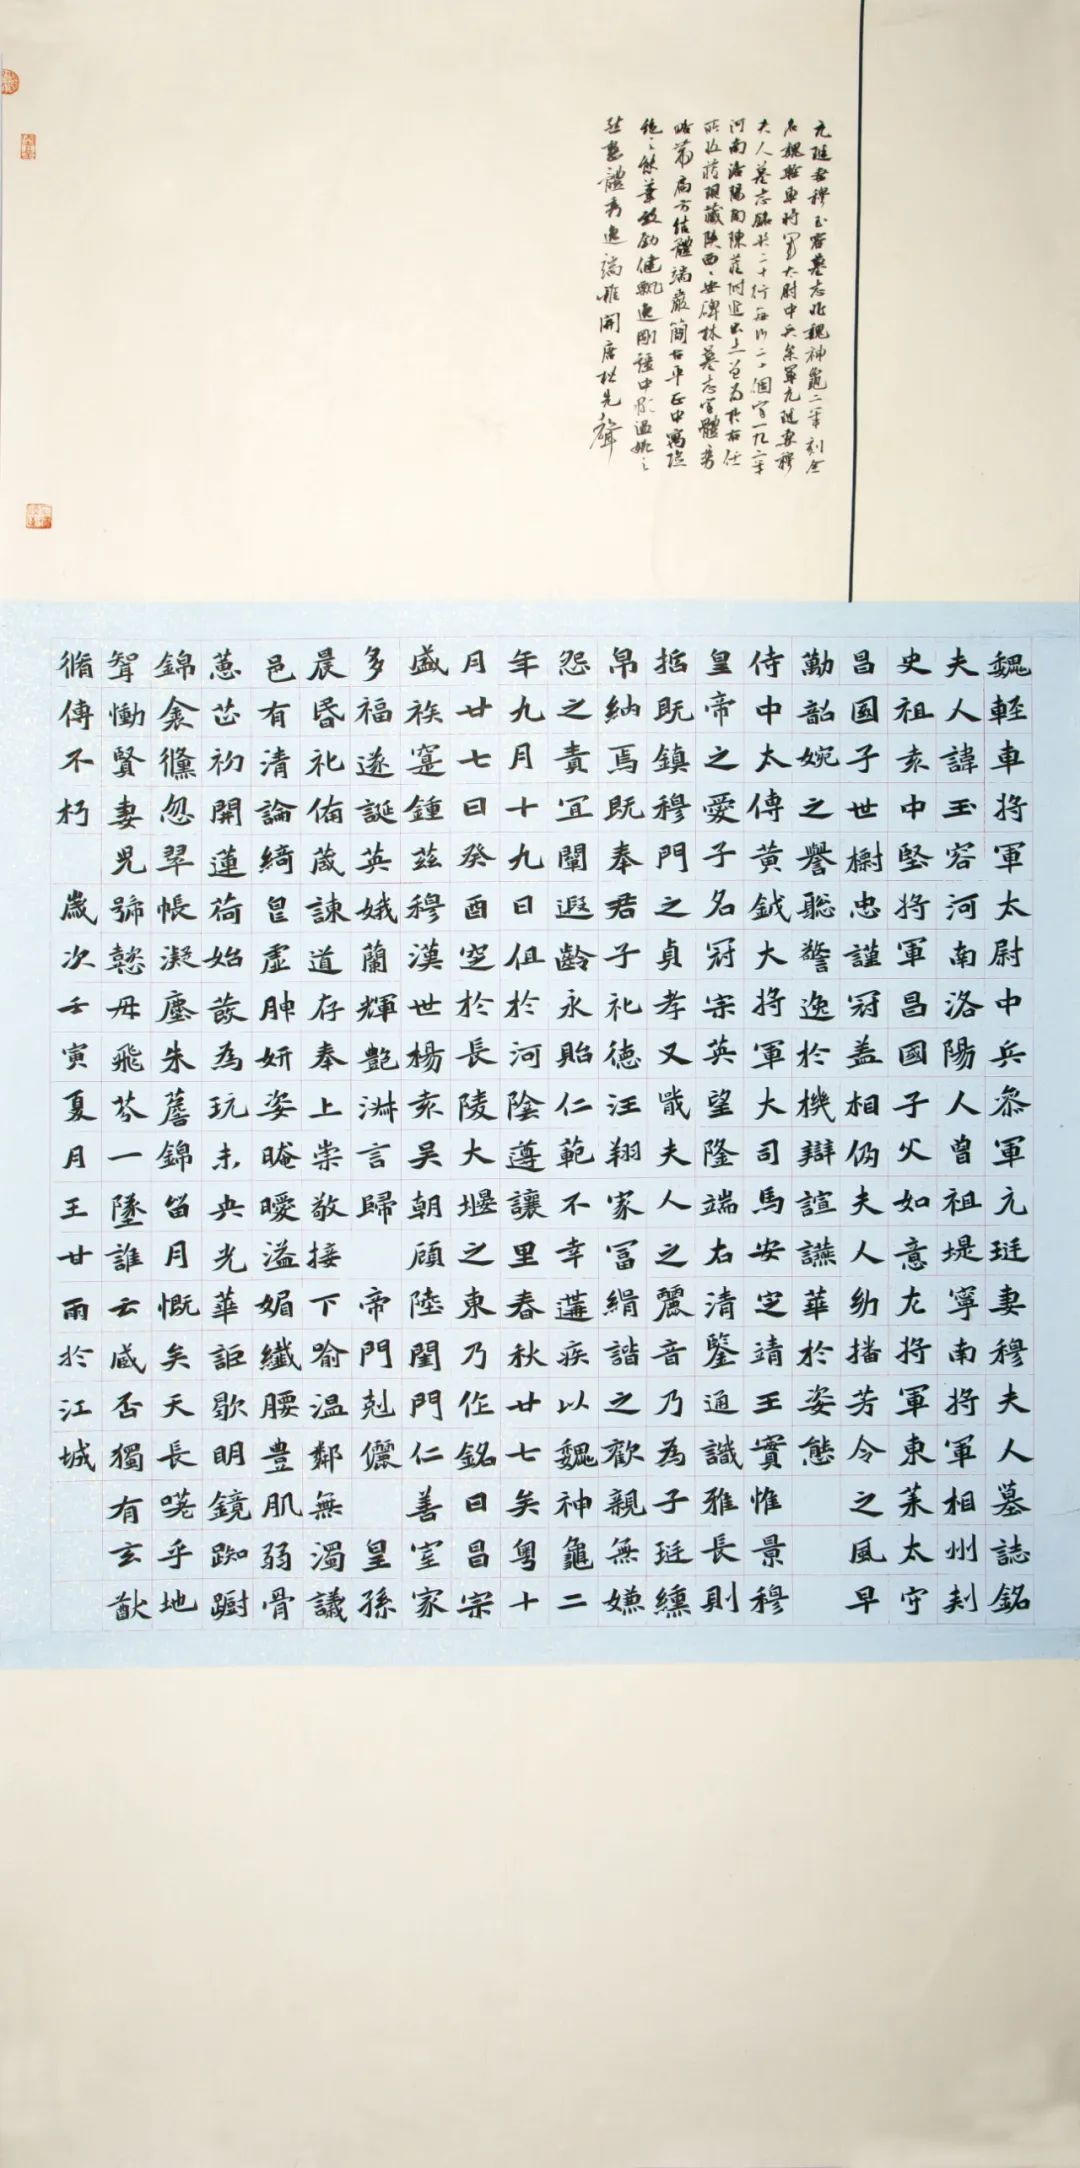 元珽妻穆玉容墓志北魏神龜二年刻全
名魏輕車將軍太尉中兵參軍元珽妻穆
夫人墓志銘共二十行每行二十個字一九二二年
河南洛陽南陳莊附近出土曾為於右任
所收藏現藏陝西西安碑林墓志字體秀
略帶扁方結體端嚴簡古平正中寓險
絕之態筆致勁健飄逸剛強中形溫婉之
然整體秀逸端雅開唐楷先聲
魏輕車將軍太尉中兵叅軍元珽妻穆夫人墓誌銘
夫人諱玉容河南洛陽人曾祖堤寧南將軍相州刾
史祖袤中堅將軍昌國子父如意左將軍東萊太守
昌國子世樹忠謹冠盖相仍夫人幼播芳令之風早
勤韶婉之譽聡警逸於機辯諠讌華於姿態
侍中太傅黃鉞大將軍大司馬安定靖王實惟景穆
皇帝之愛子名冠宗英望隆端右清鑒通識雅長則
括既鎮穆門之貞孝又戢夫人之麗音乃為子珽纁
帛納焉既奉君子礼德汪翔家冨絹諧之歡親無嫌
怨之責宜闡遐齡永貽仁範不幸遘疾以魏神龜二
年九月十九日俎於河陰遵讓里春秋廿七矣粵十
月廿七日癸酉窆於長陵大堰之東乃作銘曰昌宗
盛族寔鍾茲穆漢世楊袤吴朝顧陸閨門仁善室家
多福遂誕英娥蘭輝艷淋言歸 帝門剋儷 皇孫
晨昏礼俻葴諫道存奉上崇敬接 下喻温鄰無濁議
邑有清論綺皃虛胂妍姿晻曖溢媚纖腰豊肌弱骨
蕙芷初開蓮荷始蕟為玩未央光華詎歇明鏡踟躕
錦衾儵忽翠帳凝塵朱簷錦笛月慨矣天長嗟乎地
聟慟賢妻兒號慈母飛芬一墜誰云臧否獨有玄猷
脩傳不朽 歲次壬寅夏月王廿雨於江城